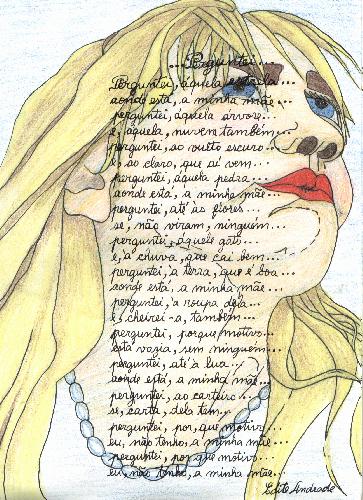 ...Perguntei...
Perguntei, àquela estrela...
aonde está, a minha mãe...
perguntei, àquela árvore...
e, àquela, nuvem também...
perguntei, ao vulto escuro...
e, ao claro, que aí vem...
perguntei, àquela pedra...
aonde está, a minha mãe...
perguntei, até às flores...
se, não viram, ninguém...
perguntei, àquele gato...
e, à chuva, que cai bem...
perguntei, à terra, que é boa...
aonde está, a minha mãe...
perguntei, à roupa dela...
e, cheirei-a, também...
perguntei, porque motivo...
está vazia, sem ninguém...
perguntei, até à lua...
aonde está, a minha mãe...
perguntei, ao carteiro...
se, carta, dela tem...
perguntei, por, que motivo...
eu, não tenho, a minha mãe...
perguntei, por, que motivo...
eu, não tenho, a minha mãe...
Edite Andrade